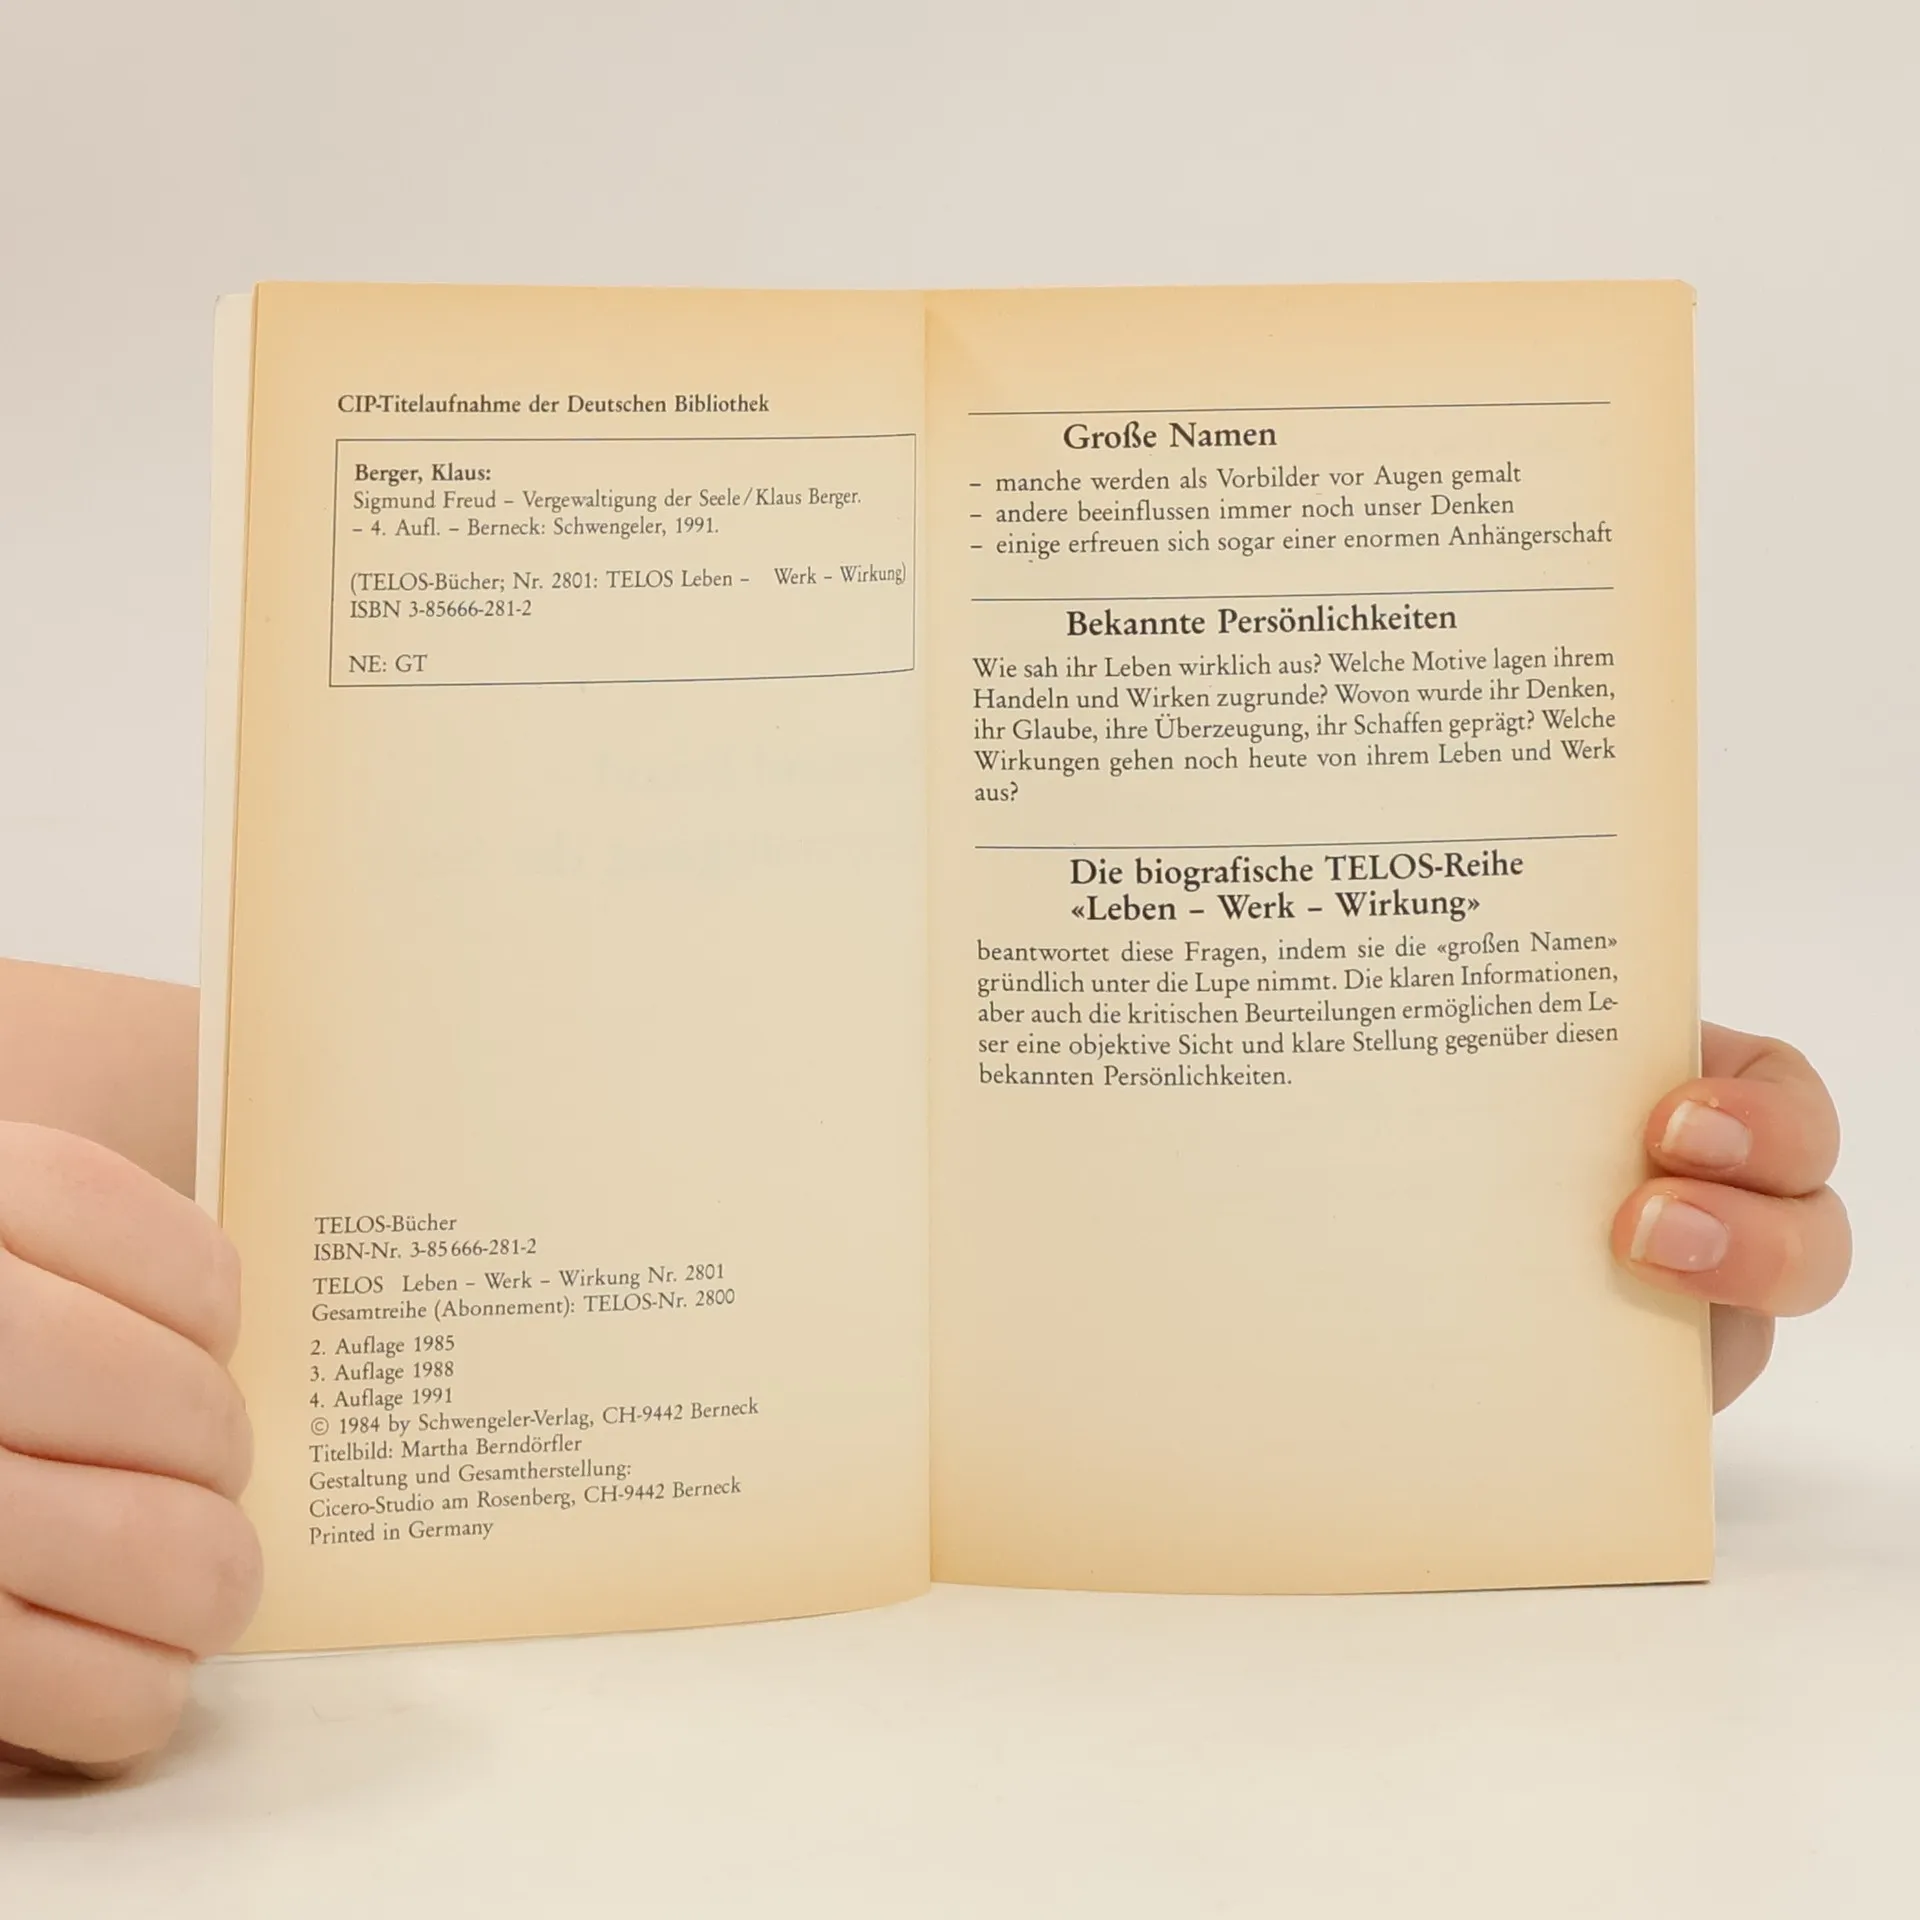 CIP-Titelaufnahme der Deutschen Bibliothek
Berger, Klaus:
Sigmund Freud – Vergewaltigung der Seele/Klaus Berger.
– 4. Aufl. – Berneck: Schwengeler, 1991.
(TELOS-Bücher; Nr. 2801: TELOS Leben – Werk – Wirkung)
ISBN 3-85666-281-2
NE: GT
TELOS-Bücher
ISBN-Nr. 3-85666-281-2
TELOS Leben – Werk – Wirkung Nr. 2801
Gesamtreihe (Abonnement): TELOS-Nr. 2800
2. Auflage 1985
3. Auflage 1988
4. Auflage 1991
© 1984 by Schwengeler-Verlag, CH-9442 Berneck
Titelbild: Martha Berndörfler
Gestaltung und Gesamtherstellung:
Cicero-Studio am Rosenberg, CH-9442 Berneck
Printed in Germany
Große Namen
– manche werden als Vorbilder vor Augen gemalt
– andere beeinflussen immer noch unser Denken
– einige erfreuen sich sogar einer enormen Anhängerschaft
Bekannte Persönlichkeiten
Wie sah ihr Leben wirklich aus? Welche Motive lagen ihrem
Handeln und Wirken zugrunde? Wovon wurde ihr Denken,
ihr Glaube, ihre Überzeugung, ihr Schaffen geprägt? Welche
Wirkungen gehen noch heute von ihrem Leben und Werk
aus?
Die biografische TELOS-Reihe
«Leben – Werk – Wirkung»
beantwortet diese Fragen, indem sie die «großen Namen»
gründlich unter die Lupe nimmt. Die klaren Informationen,
aber auch die kritischen Beurteilungen ermöglichen dem Le-
ser eine objektive Sicht und klare Stellung gegenüber diesen
bekannten Persönlichkeiten.